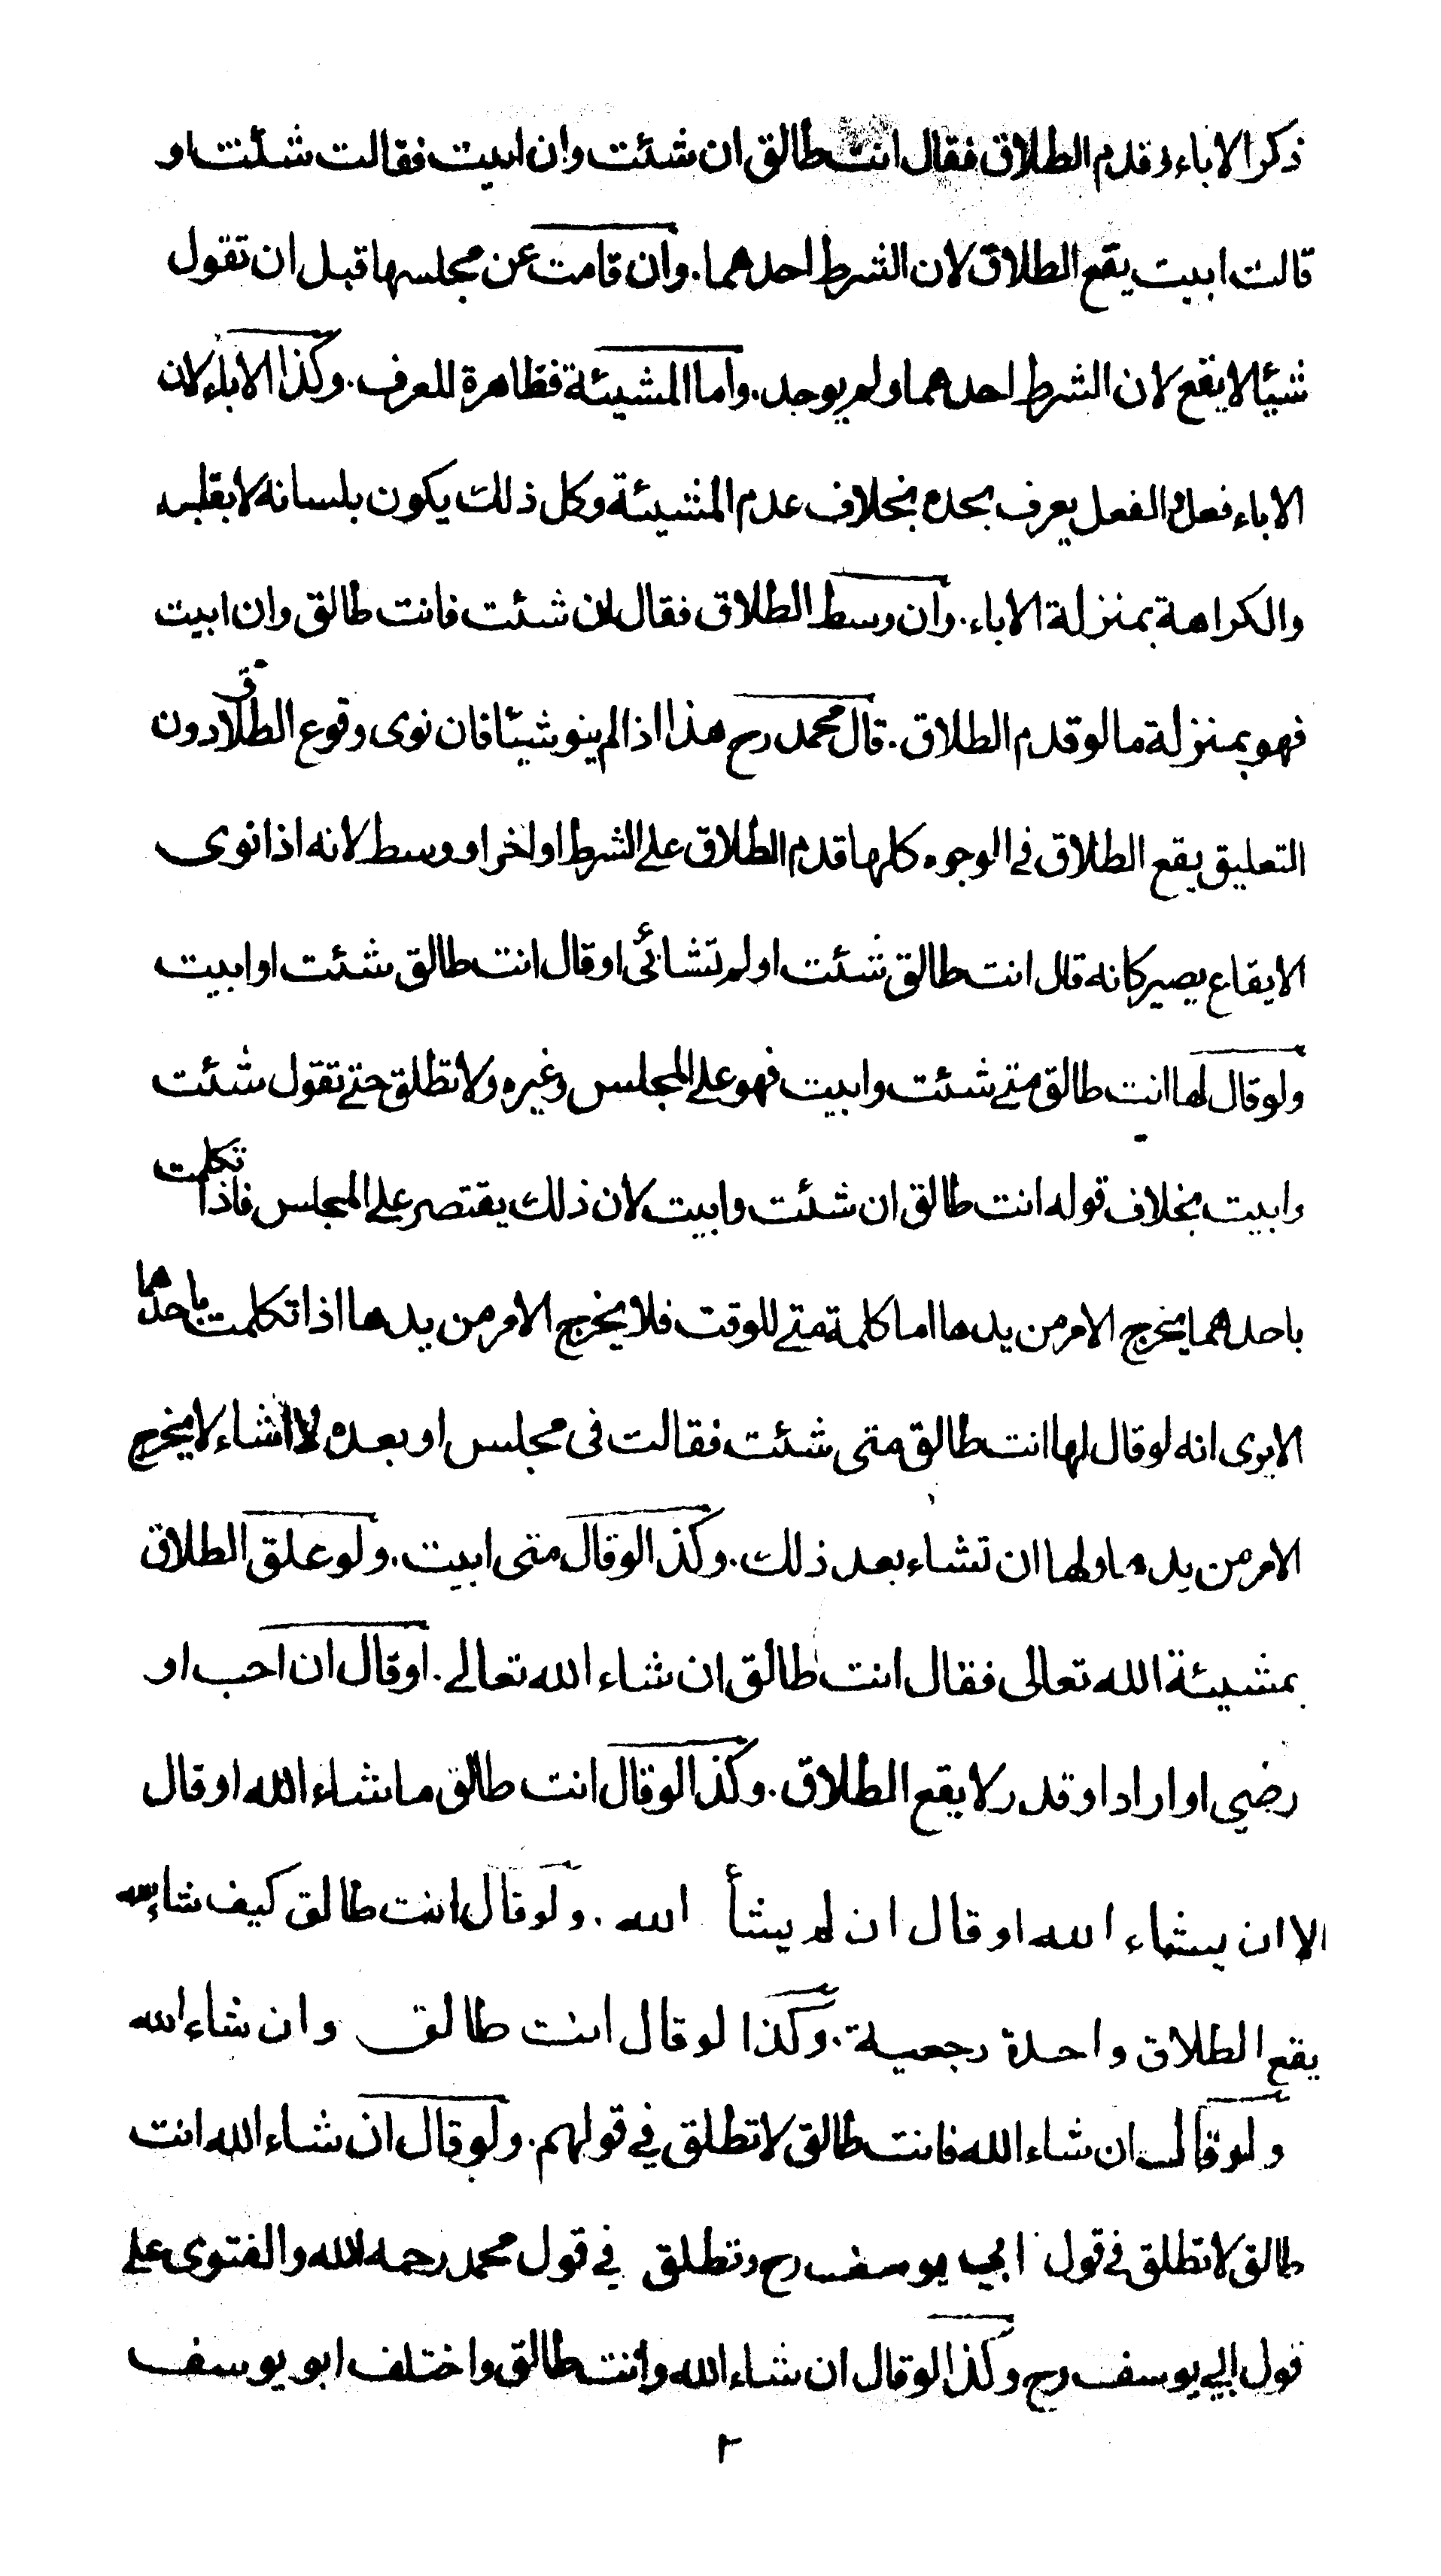 ذكر الاباء وقدم الطلاق فقال انت طالق ان شئت وان ابيت فقالت شئت او
قالت ابيت يقع الطلاق لان الشرط احدهما. وان قامت عن مجلسها قبل ان تقول
شيئا لا يقع لان الشرط احدهما ولم يوجد. واما المشيئة فظاهرة للعرف. وكذا الاباء لان
الاباء فعل والفعل يعرف بحده بخلاف عدم المشيئة وكل ذلك يكون بلسانه لا بقلبه
والكراهة بمنزلة الاباء. وان وسط الطلاق فقال ان شئت فانت طالق وان ابيت
فهو بمنزلة ما لو قدم الطلاق. قال محمد رح هذا اذا لم ينو شيئا فان نوى وقوع الطلاق دون
التعليق يقع الطلاق في الوجوه كلها قدم الطلاق على الشرط او اخر او وسط لانه اذا نوى
الايقاع يصير كانه قال انت طالق شئت او لم تشائي او قال انت طالق شئت او ابيت
ولو قال لها انت طالق متى شئت وابيت فهو على المجلس وغيره ولا تطلق حتى تقول شئت
وابيت بخلاف قوله انت طالق ان شئت وابيت لان ذلك يقتصر على المجلس فاذا تكلمت
باحدهما يخرج الامر من يدها اما كلمة متى للوقت فلا يخرج الامر من يدها اذا تكلمت باحدهما
الا يرى انه لو قال لها انت طالق متى شئت فقالت فى مجلس او بعده لا اشاء لا يخرج
الامر من يدها ولها ان تشاء بعد ذلك. وكذا لو قال متى ابيت. ولو علق الطلاق
بمشيئة الله تعالى فقال انت طالق ان شاء الله تعالى. او قال ان احب او
رضي او اراد او قدر لا يقع الطلاق. وكذا لو قال انت طالق ما شاء الله او قال
الا ان يشاء الله او قال ان لم يشأ الله. ولو قال انت طالق كيف شاء الله
يقع الطلاق واحدة رجعية. وكذا لو قال انت طالق وان شاء الله
ولو قال ان شاء الله فانت طالق لا تطلق في قولهم. ولو قال ان شاء الله انت
طالق لا تطلق في قول ابي يوسف رح وتطلق في قول محمد رحمه الله والفتوى على
قول ابي يوسف رح وكذا لو قال ان شاء الله وانت طالق واختلف ابو يوسف
٢